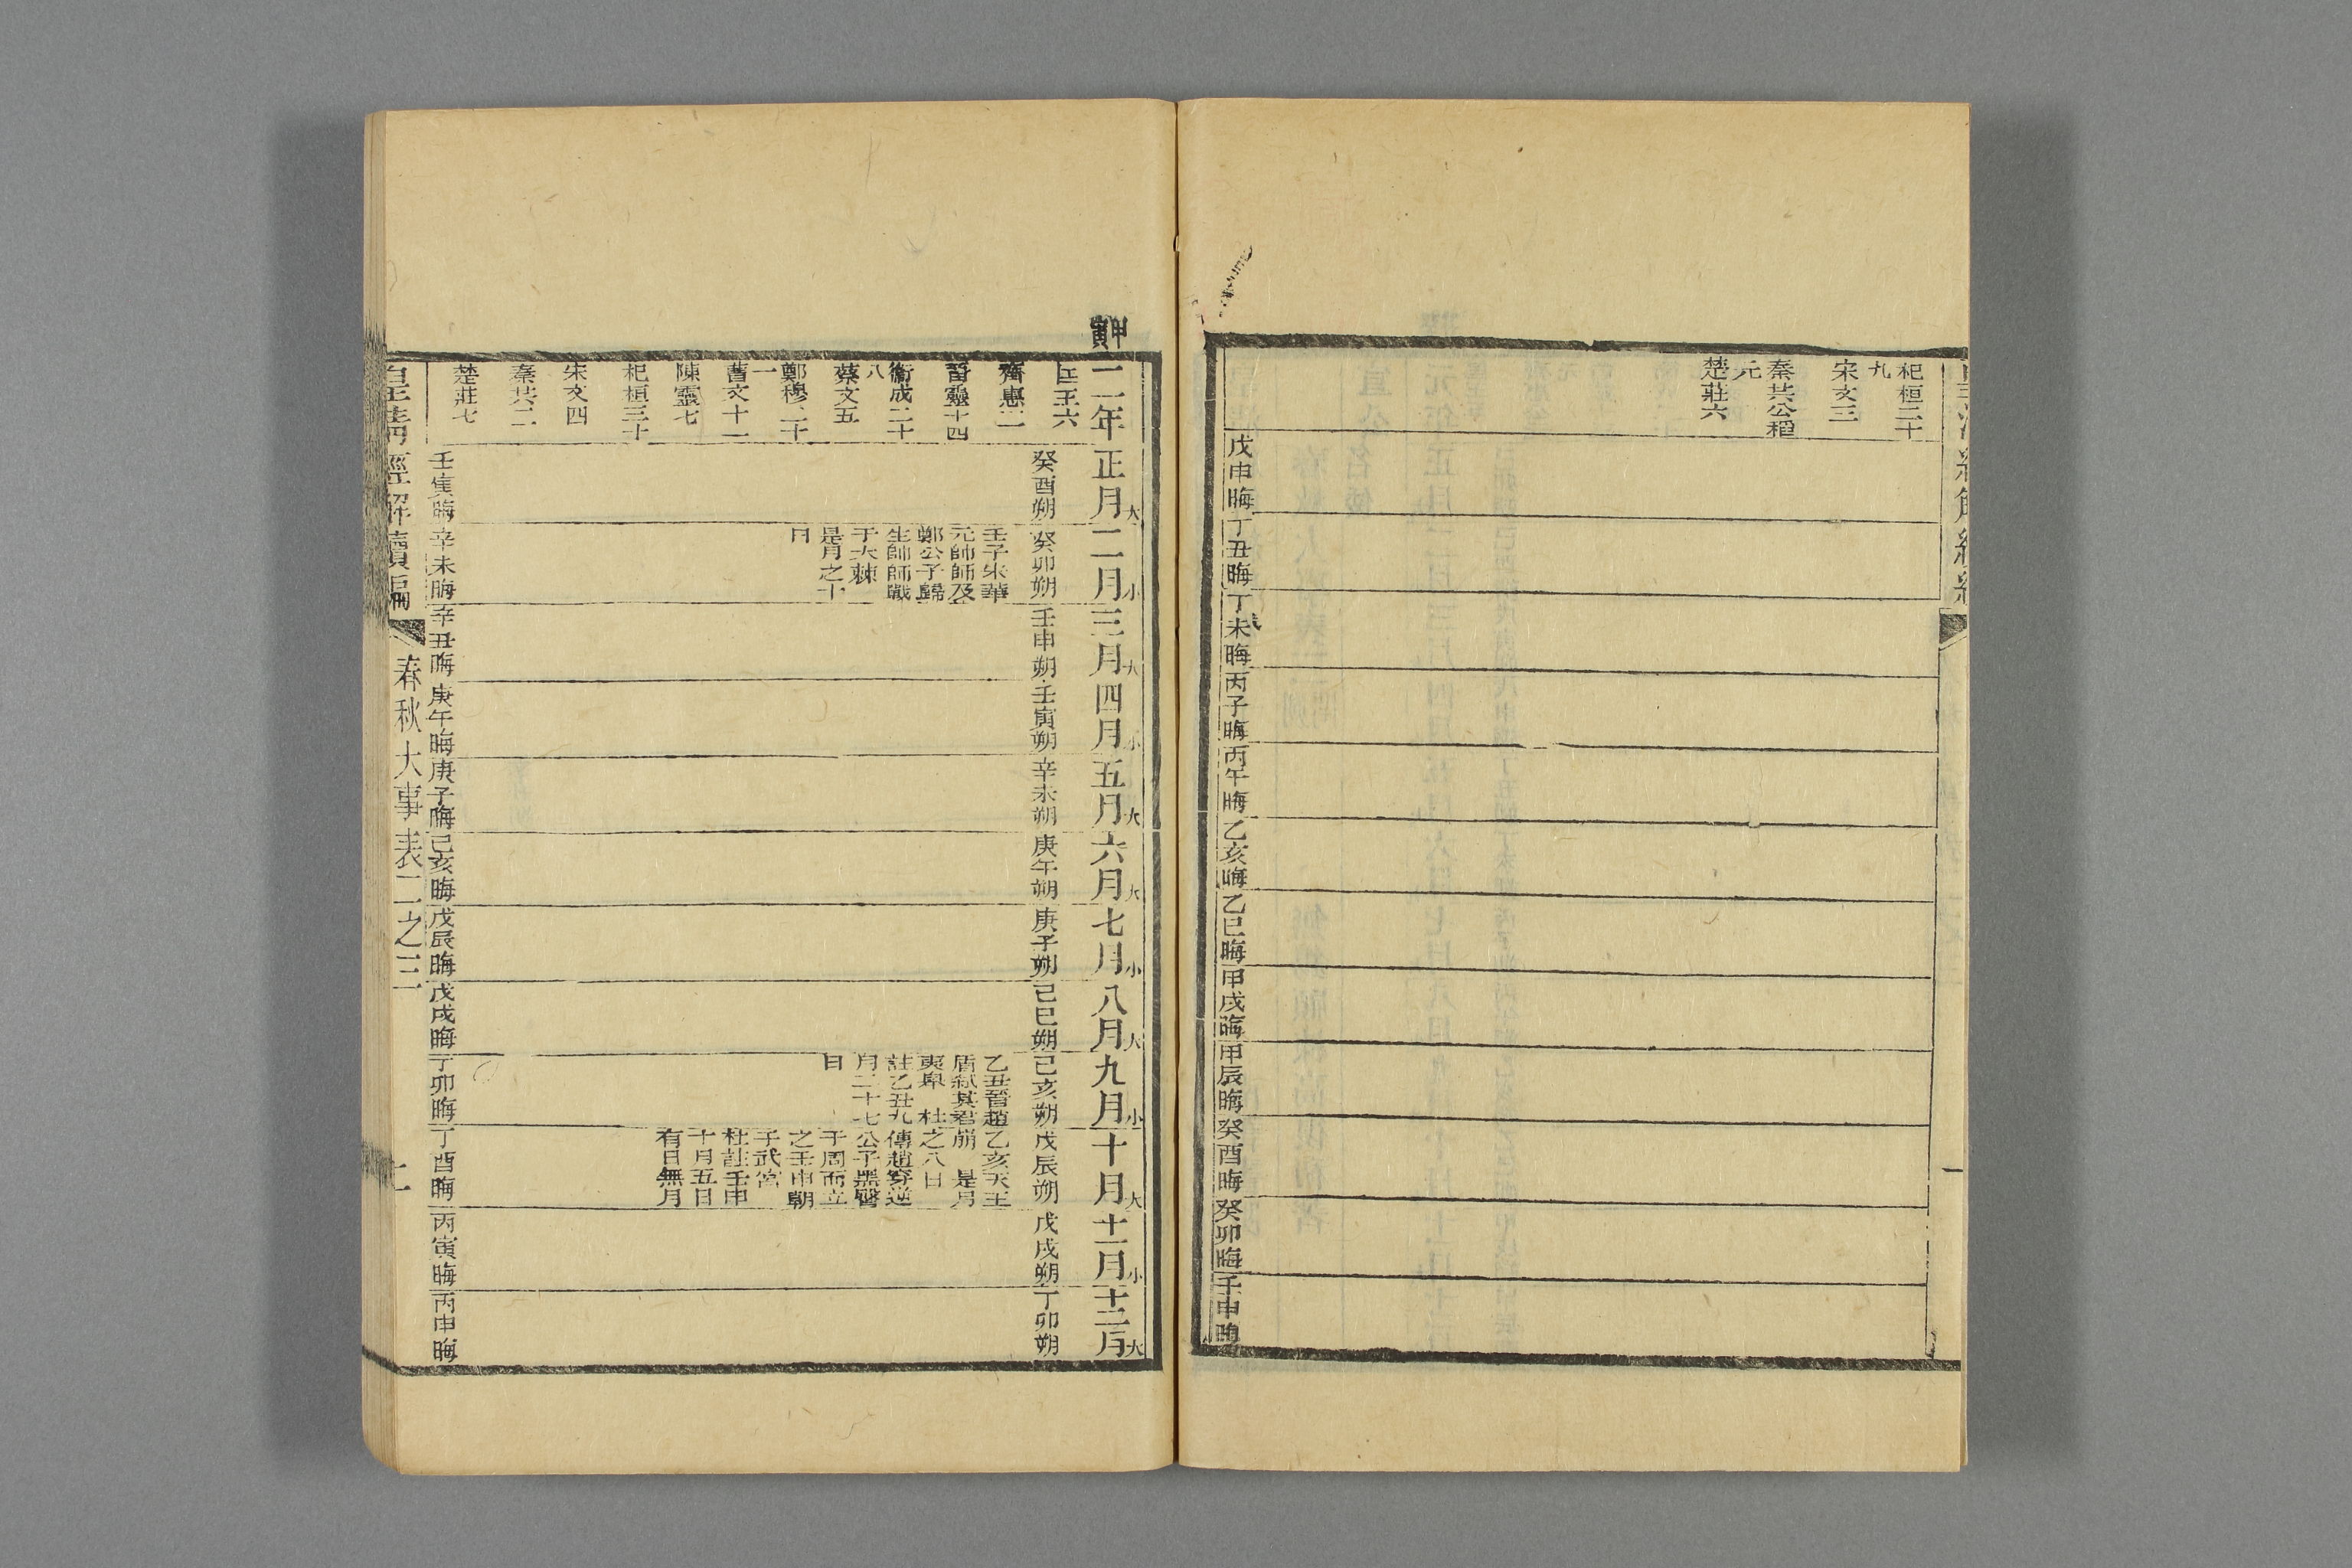 杞桓二十
九
宋文三
秦共公稻
元
楚莊六
戊申晦
丁丑晦
丁未晦
丙子晦
丙午晦
乙亥晦
乙巳晦
甲戌晦
甲辰晦
癸酉晦
癸卯晦
壬申晦
甲寅
二年
正月大
二月小
三月大
四月小
五月大
六月大
七月小
八月大
九月小
十月大
十一月小
十二月大
匡王六
齊惠二
晉靈十四
衞成二十
八
蔡文五
鄭穆二十
一
曹文十一
陳靈七
杞桓三十
宋文四
秦共二
楚莊七
癸酉朔
癸卯朔
壬申朔
壬寅朔
辛未朔
庚午朔
庚子朔
己巳朔
己亥朔
戊辰朔
戊戌朔
丁卯朔
壬子宋華
元帥師及
鄭公子歸
生帥師戰
于大棘
是月之十
日
乙丑晉趙
盾弒其君
夷皋 杜
註乙丑九
月二十七
日
乙亥天王
崩 是月
之八日
傳趙穿逆
公子黑臀
于周而立
之壬申朝
于武宮
杜註壬申
十月五日
有日無月
壬寅晦
辛未晦
辛丑晦
庚午晦
庚子晦
己亥晦
戊辰晦
戊戌晦
丁卯晦
丁酉晦
丙寅晦
丙申晦
皇清經解續編
春秋大事表二之三